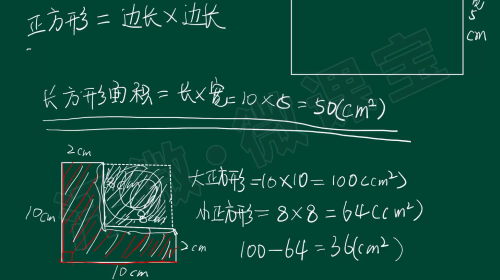 正方形 = 边长×边长
宽
5
cm
长方形面积 = 长×宽 = 10×5 = 50(cm²)
2cm
10cm
2cm
10cm
大正方形 = 10×10 = 100(cm²)
小正方形 = 8×8 = 64(cm²)
100-64 = 36(cm²)